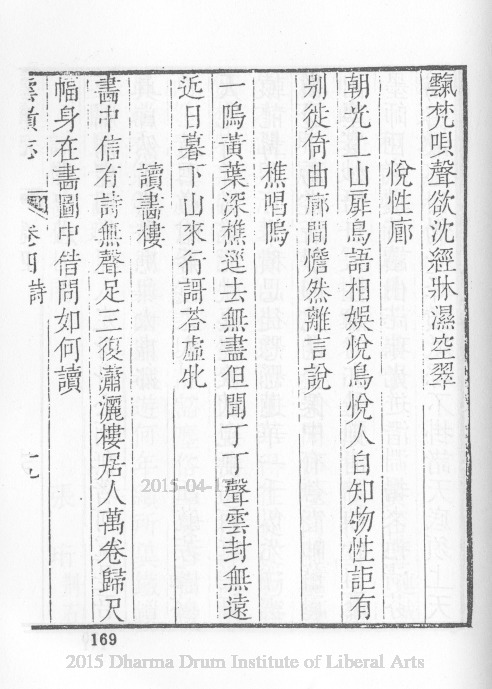 飄梵唄聲欲沈經牀濕空翠
悅性廊
朝光上山扉鳥語相娛悅鳥悅人自知物性詎有
别徙倚曲廊間憺然離言說
樵唱塢
一塢黃葉深樵逕去無盡但聞丁丁聲雲封無遠
近日暮下山來行謌荅虛牝
讀畫樓
畫中信有詩無聲足三復瀟灑樓居人萬卷歸尺
幅身在畫圖中借問如何讀
志 卷四 詩 十九
169
2015-04-17
2015 Dharma Drum Institute of Liberal Arts